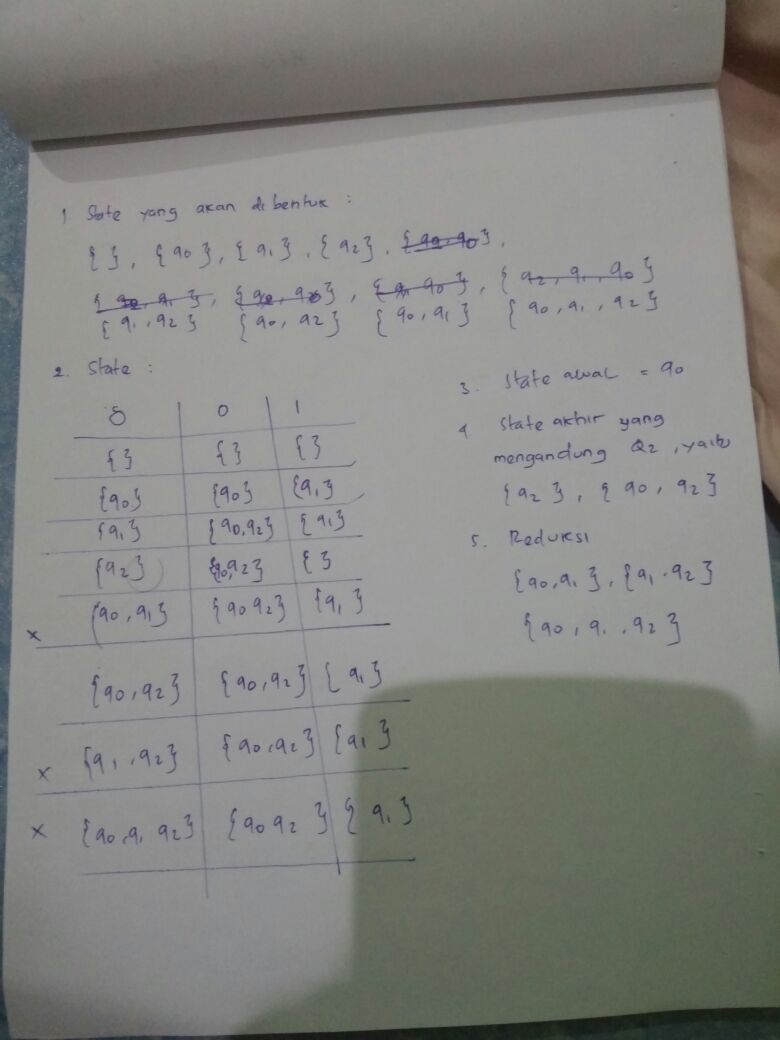 1. State yang akan dibentuk :
{ }, {q0}, {q1}, {q2}, {q2, q0},
{q2, q1}, {q2, q0}, {q1, q0}, {q2, q1, q0}
{q1, q2} {q0, q2} {q0, q1} {q0, q1, q2}
2. State :
δ 0 1
{ } { } { }
{q0} {q0} {q1}
{q1} {q0,q2} {q1}
{q2} {q0,q2} { }
x {q0, q1} {q0 q2} {q1}
{q0, q2} {q0, q2} {q1}
x {q1, q2} {q0, q2} {q1}
x {q0, q1 q2} {q0 q2} {q1}
3. State awal = q0
4 State akhir yang
mengandung Q2, yaitu
{q2}, {q0, q2}
5. Reduksi
{q0, q1}, {q1, q2}
{q0, q1, q2}